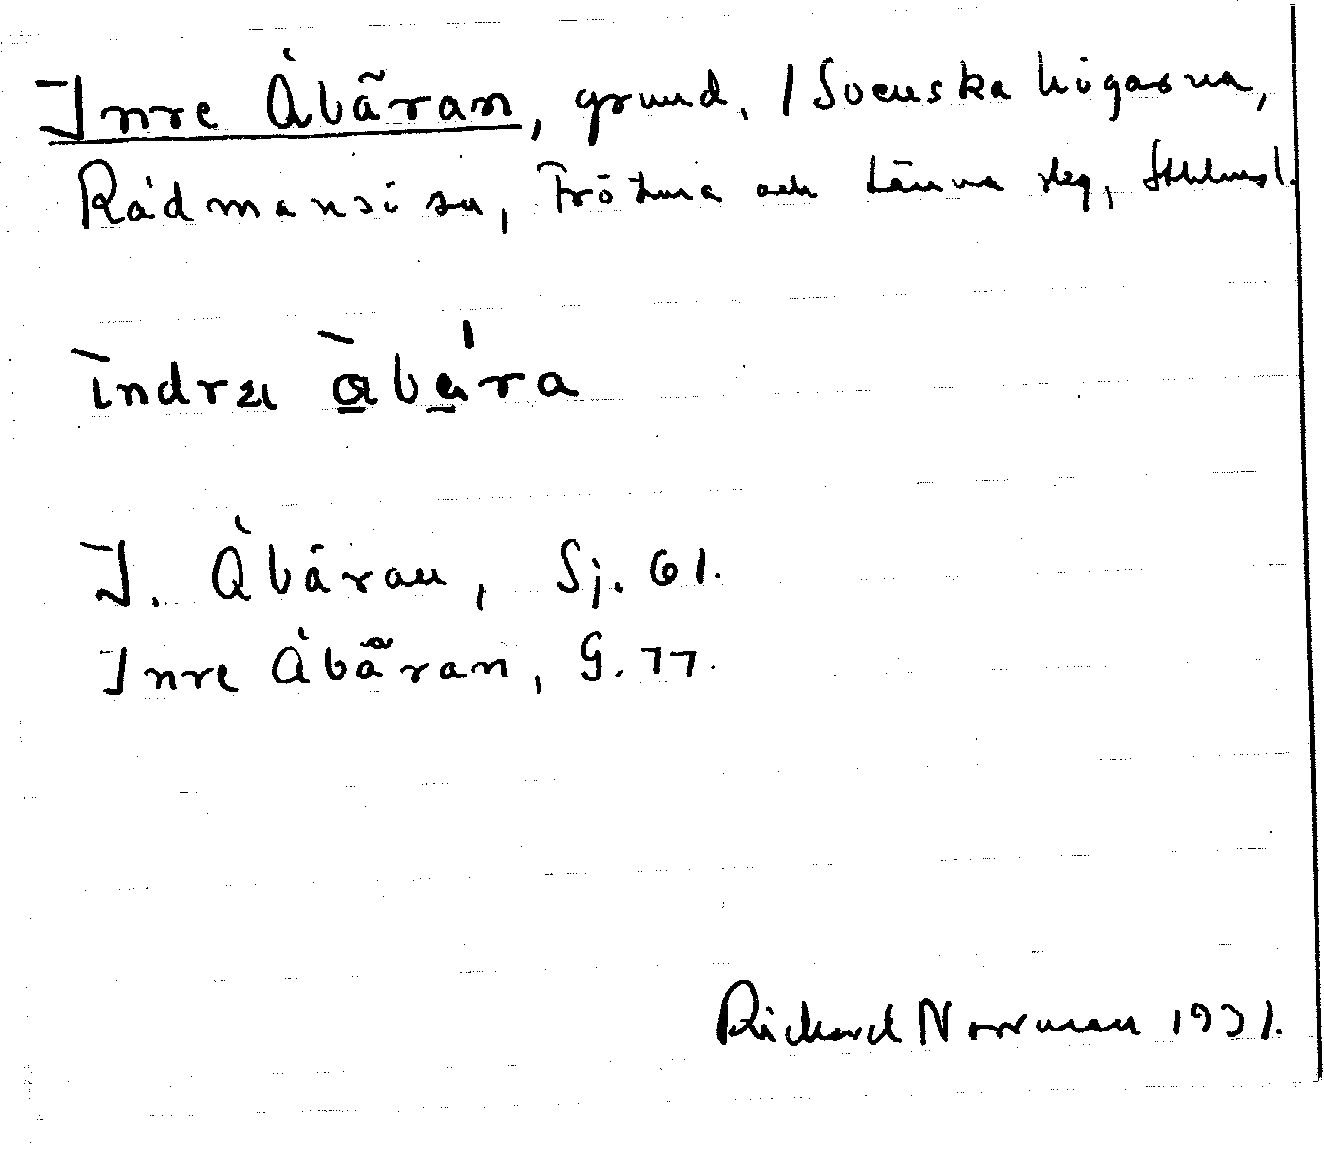 Inre Åbåran, grund, / Svenska högarna,
Rådmansö sn, Frötuna och Länna skg, Sthlms l.
ìndrɛ åbå'ra
I. Åbåran, Sj. 61.
Inre Åbåran, G. 77.
Rickard Norrman 1931.